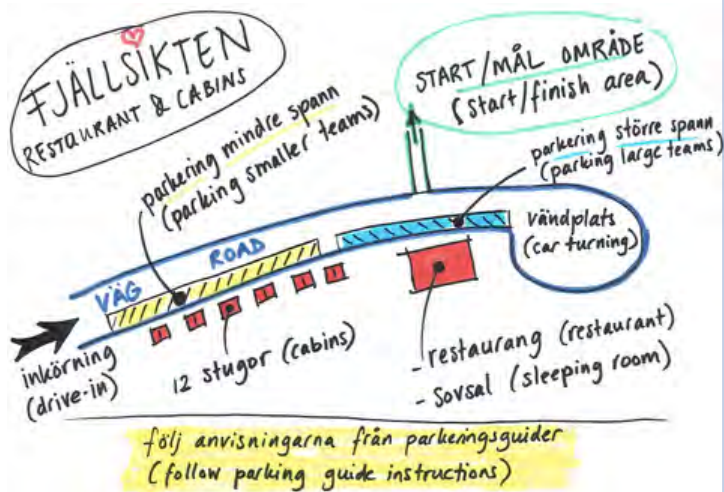 FJÄLLSIKTEN
RESTAURANT & CABINS
START/MÅL OMRÅDE
(start/finish area)
parkering mindre spann
(parking smaller teams)
parkering större spann
(parking large teams)
vändplats
(car turning)
VÄG ROAD
inkörning
(drive-in)
12 stugor (cabins)
- restaurang (restaurant)
- Sovsal (sleeping room)
följ anvisningarna från parkeringsguider
(follow parking guide instructions)